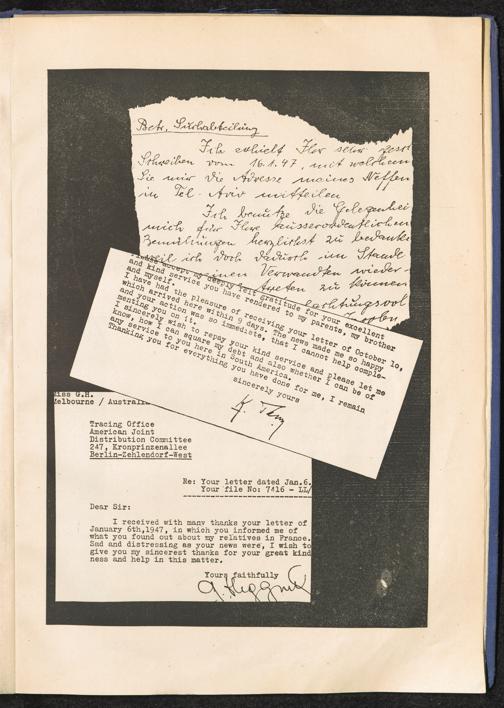 Betr. Suchabteilung
Ich erhielt Ihr sehr
Schreiben vom 16.1.47, mit welchem
Sie mir die Adresse meines Neffen
in Tel-Aviv mitteilen
Ich benutze die Gelegenhei
mich für Ihre ausserordentlichen
Bemühungen herzlichst zu bedanke
weil ich doch dadurch im Stande
einen Verwandten wieder-
treten zu können
achtungsvol
accept my deeply felt gratitude for your excellent
and kind service you have rendered to my parents, my brother
and myself.
I have had the pleasure of receiving your letter of October 10,
which arrived here within 9 days. The news made me so happy
and your action was so immediate, that I cannot help comple-
menting you on it.
I sincerely wish to repay your kind service and please let me
know, how I can square my debt and also whether I can be of
any service to you here in South America.
Thanking you for everything you have done for me, I remain
sincerely yours
iss G.H.
elbourne / Australi
Tracing Office
American Joint
Distribution Committee
247, Kronprinzenallee
Berlin-Zehlendorf-West
Re: Your letter dated Jan.6.
Your file No: 7416 - LL/
Dear Sir:
I received with many thanks your letter of
January 6th,1947, in which you informed me of
what you found out about my relatives in France.
Sad and distressing as your news were, I wish to
give you my sincerest thanks for your great kind
ness and help in this matter.
Yours faithfully